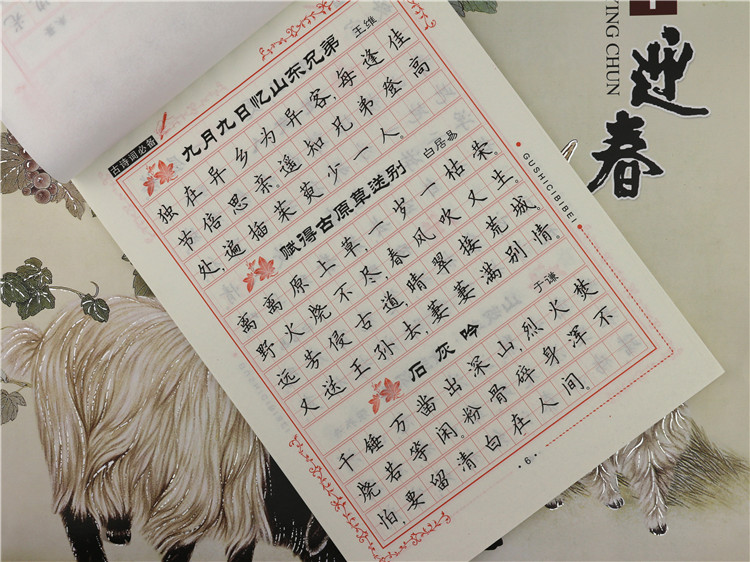 古诗词必备
九月九日忆山东兄弟 王维
独在异乡为异客,每逢佳
节倍思亲。遥知兄弟登高
处,遍插茱萸少一人。
赋得古原草送别 白居易
离离原上草,一岁一枯荣。
野火烧不尽,春风吹又生。
远芳侵古道,晴翠接荒城。
又送王孙去,萋萋满别情。
石灰吟 于谦
千锤万凿出深山,烈火焚
烧若等闲。粉骨碎身浑不
怕,要留清白在人间。
GUSHICIBIBEI
·6·
迎春
YING CHUN